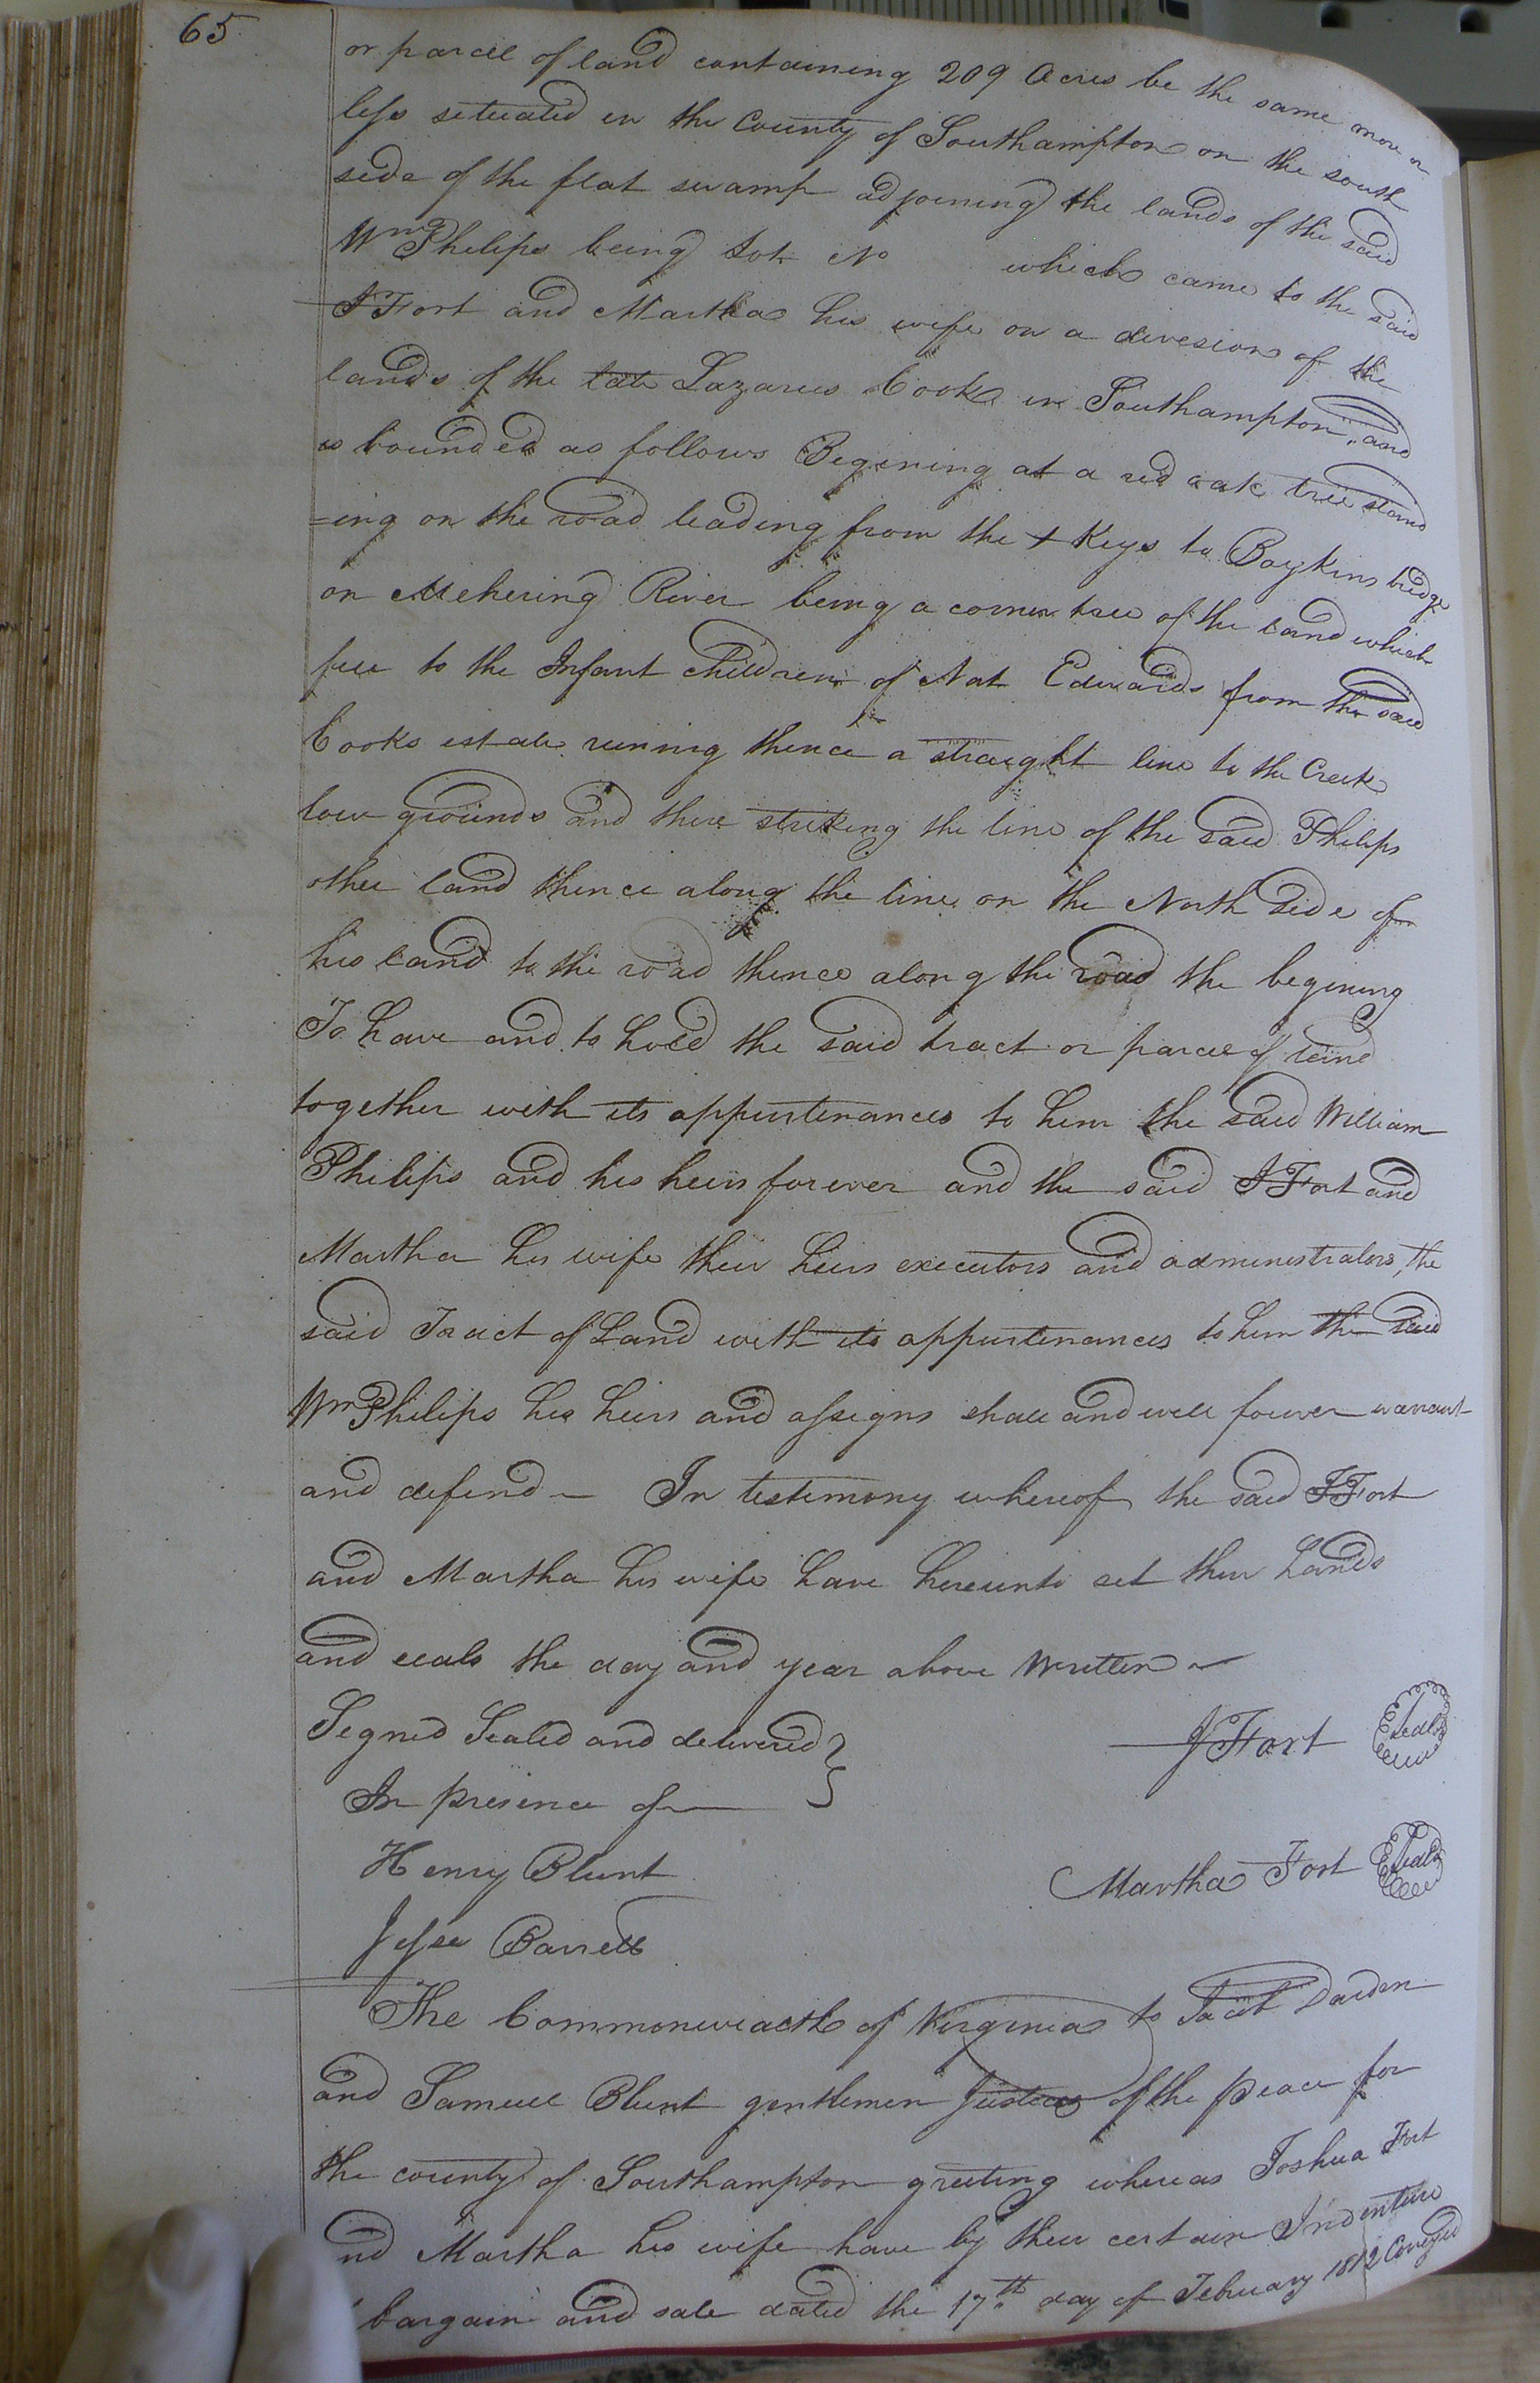 65
or parcel of land containing 209 Acres be the same more or
less situated in the County of Southampton on the south
side of the flat swamp adjoining the lands of the said
Wm Philips being Lot No which came to the said
J Fort and Martha his wife on a division of the
lands of the late Lazarus Cook in Southampton, and
is bounded as follows Begining at a red oak tree stand
=ing on the road leading from the + Keys to Boykins bridge
on Mehering River being a corner tree of the land which
fell to the Infant children of Nat Edwards from the said
Cooks estate running thence a straight line to the Creek
low grounds and there striking the line of the said Philips
other land thence along the line on the North side of
his land to the road thence along the road the begining
To have and to hold the said tract or parcel of land
together with its appurtenances to him the said William
Philips and his heirs forever and the said J Fort and
Martha his wife their heirs executors and administrators, the
said Tract of Land with its appurtenances to him the said
Wm Philips his heirs and assigns shall and will forever warrant
and defend – In testimony whereof the said J Fort
and Martha his wife have hereunto set their hands
and seals the day and year above written
Signed Sealed and delivered }
J Fort Seal
In presence of
Henry Blunt
Martha Fort Seal
Jesse Barrett
The Commonwealth of Virginia to Jacob Darden
and Samuel Blunt gentlemen Justices of the peace for
the county of Southampton greeting whereas Joshua Fort
nd Martha his wife have by their certain Indenture
bargain and sale dated the 17th day of February 1812 Conveyed